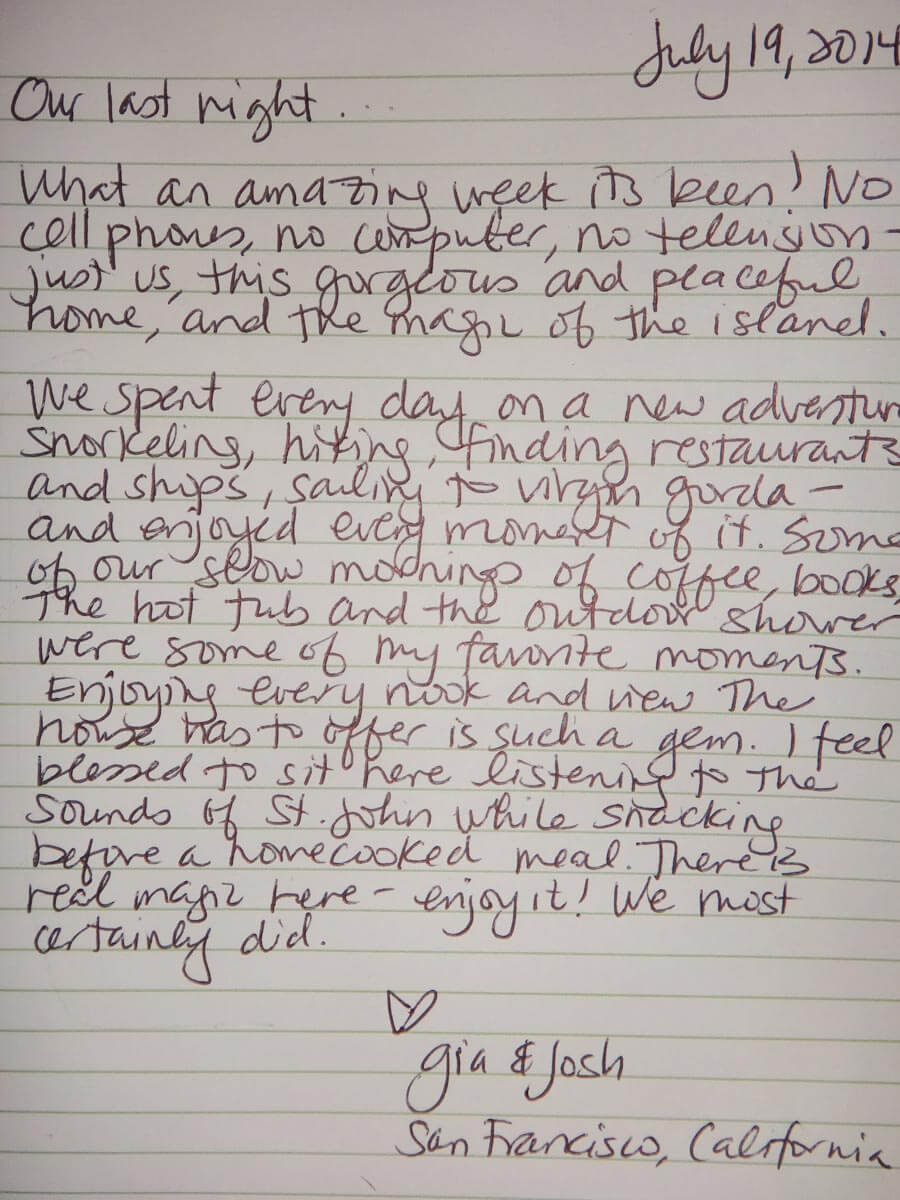 July 19, 2014
Our last night...
What an amazing week it's been! No
cell phones, no computer, no television -
just us, this gorgeous and peaceful
home, and the magic of the island.
We spent every day on a new adventur
snorkeling, hiking, finding restaurants
and ships, sailing to virgin gorda -
and enjoyed every moment of it. Some
of our slow mornings of coffee, books,
The hot tub and the outdoor shower
were some of my favorite moments.
Enjoying every nook and view The
house has to offer is such a gem. I feel
blessed to sit here listening to the
sounds of St. John while snacking
before a homecooked meal. There is
real magic here - enjoy it! We most
certainly did.
gia & Josh
San Francisco, California